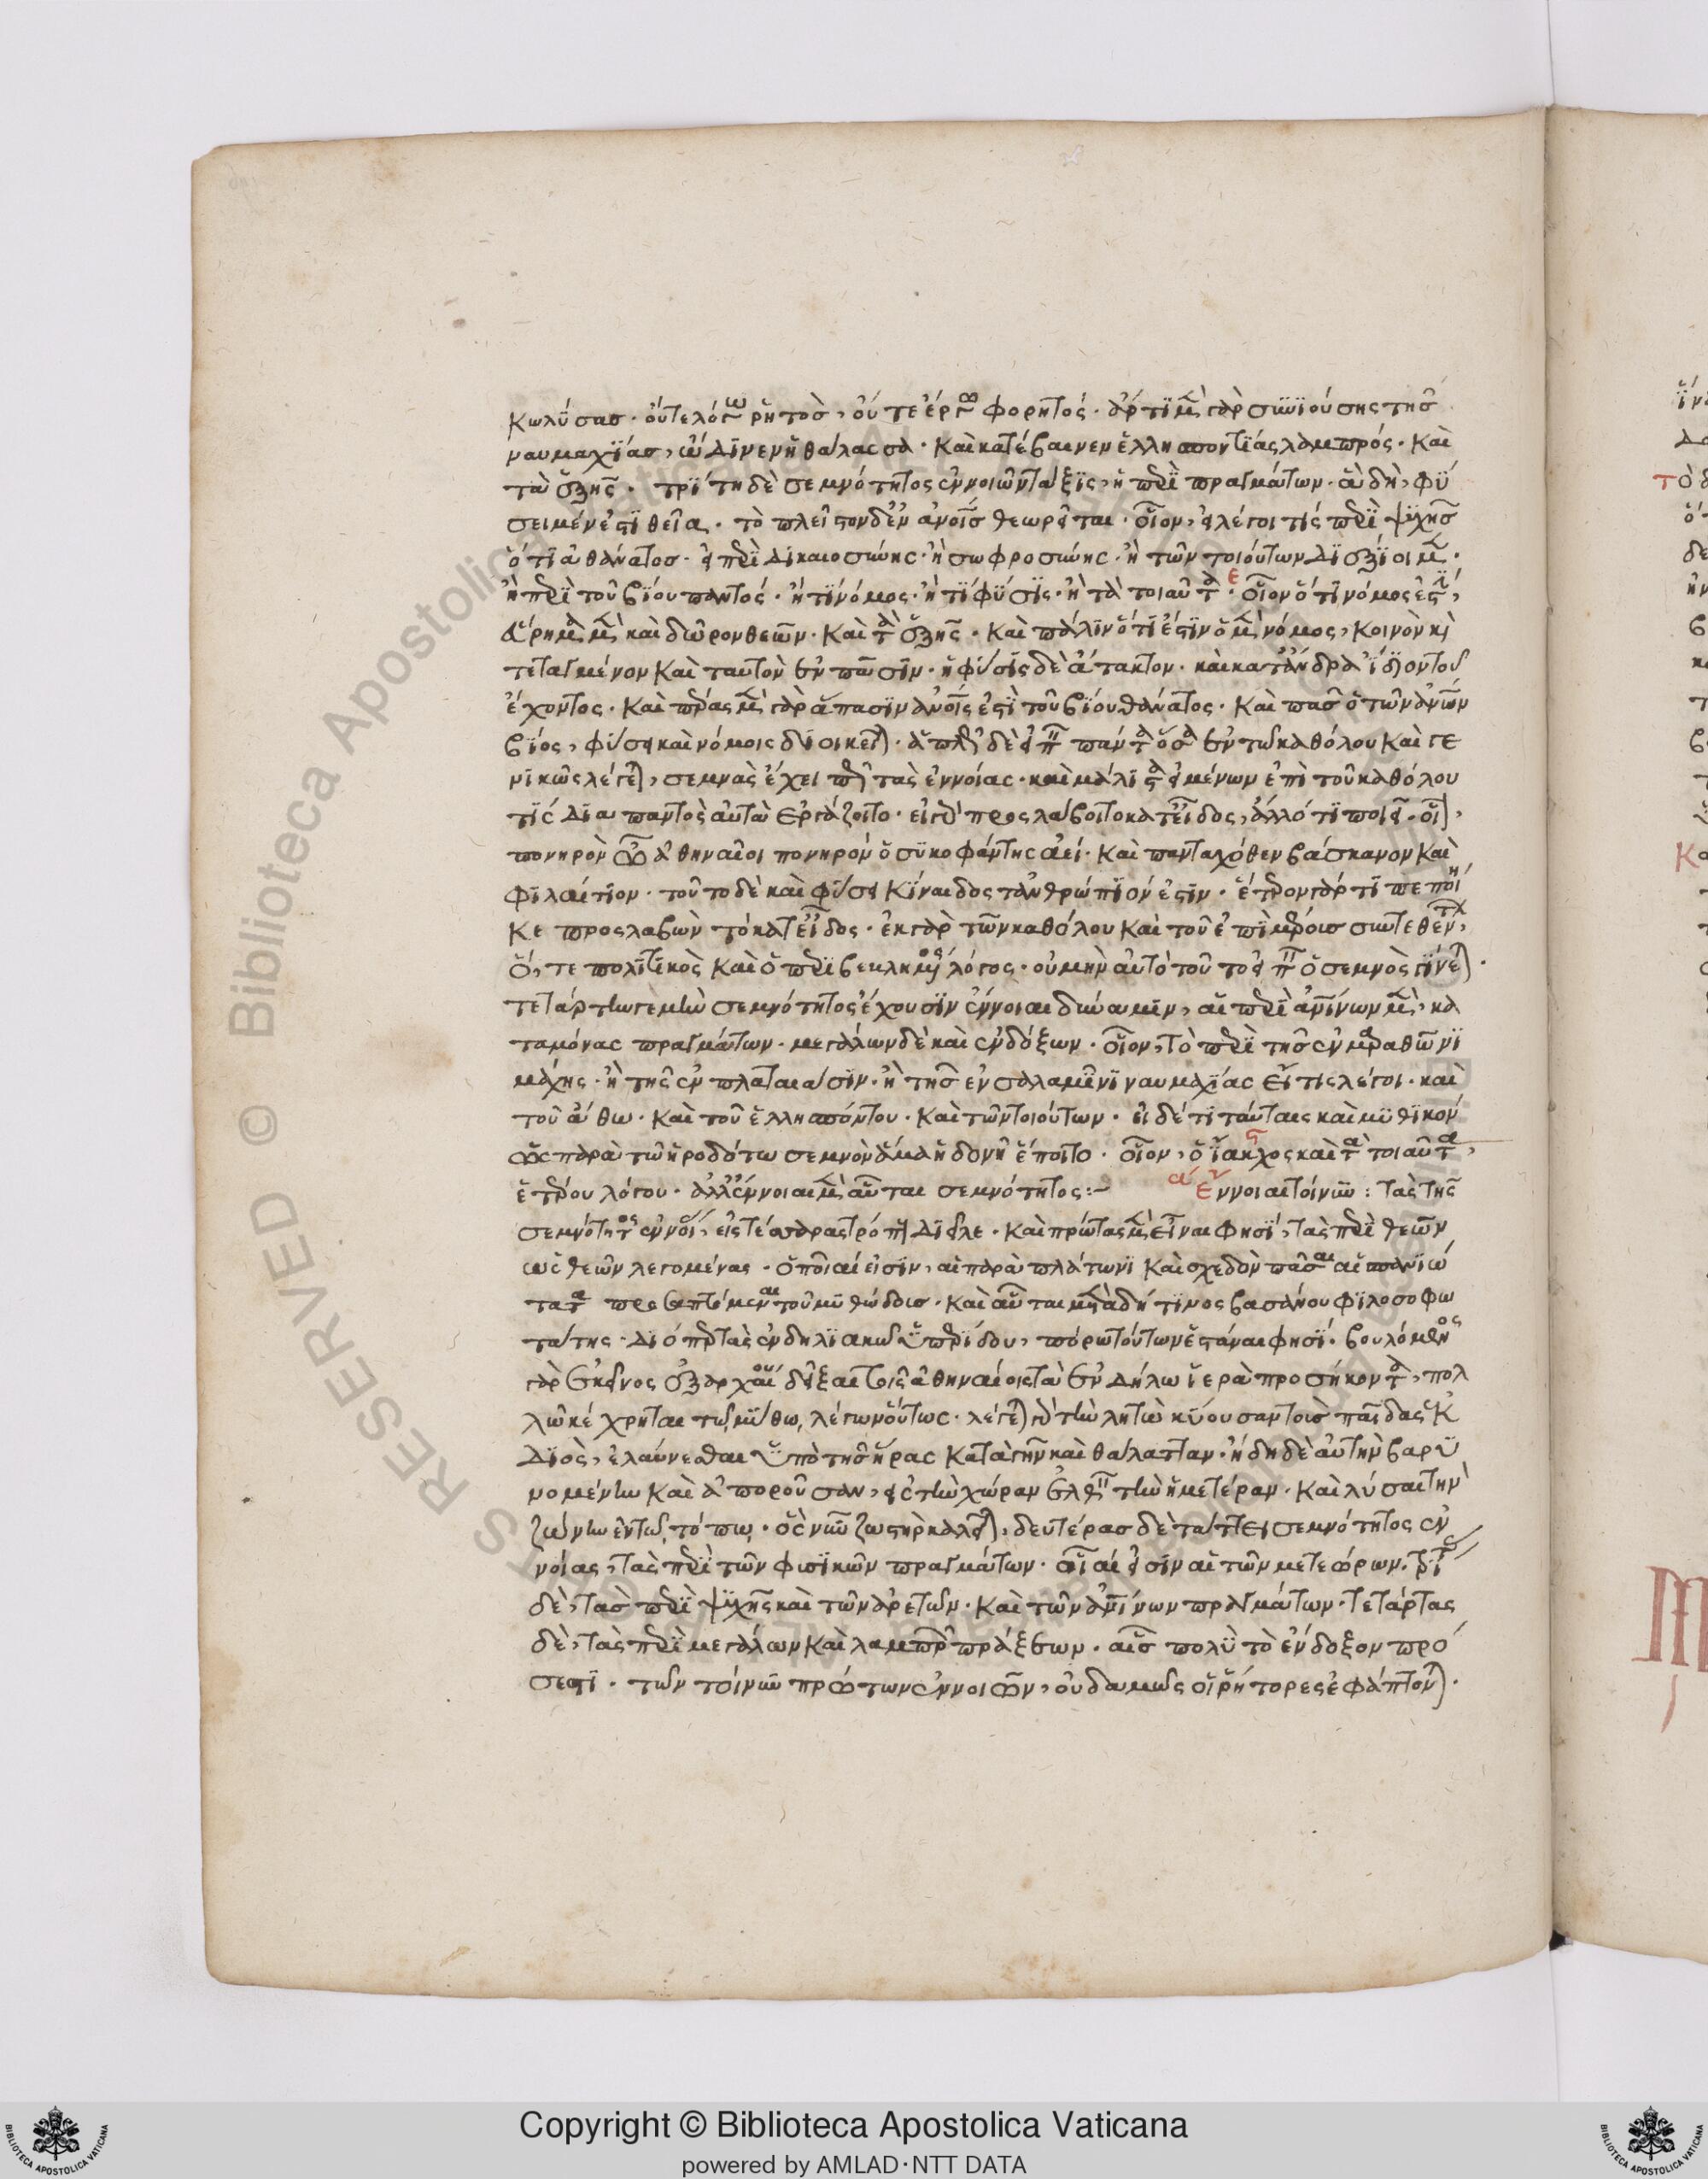 κωλύσας. οὔτε λόγῳ ῥητὸς, οὔτε ἔργω φορητός. ἄρτι μὲν γὰρ συνιούσης τῆς
ναυμαχίας, ὤδινεν ἡ θάλασσα. καὶ κατέβαινεν ἑλλησποντίας λαμπρός. καὶ
τὰ ἑξῆς. τρίτη δὲ σεμνότητος ἐννοιῶν τάξις, ἡ περὶ πραγμάτων. ἃ δὴ, φύ
σει μέν ἐστι θεῖα. τὸ πλεῖστον δ' ἐν ἀνοις θεωρεῖται. οἷον, εἰ λέγοι τίς περὶ ψυχῆς
ὅτι ἀθάνατος. ἢ περὶ δικαιοσύνης. ἢ σωφροσύνης. ἢ τῶν τοιούτων διεξίοι μεν.
ἢ περὶ τοῦ βίου παντός. ἢ τί νόμος. ἢ τί φύσις. ἢ τὰ τοιαῦτα. οἷον ὅτι νόμος ἐστὶ,
εὕρημα μὲν καὶ δῶρον θεῶν. καὶ τὰ ἑξῆς. καὶ πάλιν ὅτι ἐστὶν ὁ μὲν νόμος, κοινὸν καὶ
τεταγμένον καὶ ταυτὸν ἐν πᾶσιν. ἡ φύσις δὲ ἄτακτον. καὶ κατ' ἄνδρα ἴδιον τοῦ
ἔχοντος. καὶ πέρας μὲν γὰρ ἅπασιν ἀνοις ἐστὶ τοῦ βίου θάνατος. καὶ πᾶς ὁ τῶν ἀνων
βίος, φύσει καὶ νόμοις διοικεῖται. ἁπλῶς δὲ εἰπεῖν πάντα ὅσα ἐν τῶ καθόλου καὶ γε
νικῶς λέγεται, σεμνὰς ἔχει τὰς ἐννοίας. καὶ μάλιστα εἰ μένων ἐπὶ τοῦ καθόλου
τίς διαπαντὸς αὐτὰ ἐργάζοιτο. εἰ γὰρ προσλάβοιτο κατ' εἶδος, ἄλλό τι ποιεῖ. οἷον,
πονηρὸν ὦ ἀθηναῖοι πονηρόν ὁ συκοφάντης ἀεί. καὶ πανταχόθεν βάσκανον καὶ
φιλαίτιον. τοῦτο δὲ καὶ φύσει κίναιδος τἀνθρώπιόν ἐστιν. ἕτερον γάρ τι πεποίη
κε προσλαβὼν τὸ κατ' εἶδος. ἐκ γὰρ τῶν καθόλου καὶ τοῦ ἐπὶ μέρους συντεθέντα,
ὅ, τε πολιτικὸς καὶ ὁ περιβεβλημένος λόγος. οὐ μὴν αὐτὸ τοῦτο εἰπεῖν ὁ σεμνὸς γίνεται.
τετάρτην γε μὴν σεμνότητος ἔχουσιν ἔννοιαι δύναμιν, αἳ περὶ ἀνίνων μὲν, κα
ταμόνας πραγμάτων. μεγάλων δὲ καὶ ἐνδόξων. οἷον, τὸ περὶ τῆς ἐν μαραθῶνι
μάχης. ἢ τῆς ἐν πλαταιαῖσιν. ἢ τῆς ἐν σαλαμῖνι ναυμαχίας εἴ τις λέγοι. καὶ
τοῦ ἄθω. καὶ τοῦ ἑλλησπόντου. καὶ τῶν τοιούτων. εἰ δέ τι ταύταις καὶ μυθικόν
ὡς παρὰ τῶ ἡροδότω σεμνὸν ἅμα ἡδονῆ ἕποιτο. οἷον, ὁ ἴακχος καὶ τὰ τοιαῦτα,
ἑτέρου λόγου. ἀλλ' ἔννοιαι μὲν αὗται σεμνότητος:- Ἔννοιαι τοίνυν: τὰς τῆς
σεμνότητος ἐννοίας, εἰς τέσσαρας τρόπους διεῖλε. καὶ πρώτας μὲν εἶναι φησὶ, τὰς περὶ θεῶν
ὡς θεῶν λεγομένας. ὁποῖαί εἰσιν, αἱ παρὰ πλάτωνι καὶ σχεδὸν πᾶσαι αἱ
τοῦ μυθώδους. καὶ αὗται μὲν τινος βασάνου φιλοσοφω
τάτης. φησί. βουλόμενος
γὰρ ἐκεῖνος ἐξαρχῆς δεῖξαι τοῖς ἀθηναίοις τὰ ἐν δήλω ἱερὰ προσήκοντα, πολ
λῶ κέχρηται τῶ μύθω, λέγων οὕτως. λέγεται γὰρ τὴν λητὼ κύουσαν τοὺς παῖδας ἐκ
διὸς, ἐλαύνεσθαι ὑπὸ τῆς ἥρας κατὰ γῆν καὶ θάλατταν. ἤδη δὲ αὐτὴν βαρυ
νομένην καὶ ἀποροῦσαν, εἰς τὴν χώραν ἐλθεῖν τὴν ἡμετέραν. καὶ λύσαι τὴν
ζώνην ἐν τῶ τόπω, ὃς νῦν ζωστὴρ καλεῖται, δευτέρας δὲ τάττει σεμνότητος ἐν
νοίας, τὰς περὶ τῶν φυσικῶν πραγμάτων. οἷαί εἰσιν αἱ τῶν μετεώρων. τρίτας
δὲ, τὰς περὶ ψυχῆς καὶ τῶν ἀρετῶν. καὶ τῶν ἀνίνων πραγμάτων. τετάρτας
δὲ, τὰς περὶ μεγάλων καὶ λαμπρῶν πράξεων. αἷς πολὺ τὸ ἔνδοξον πρό
σεστι. τῶν τοίνυν πρώτων ἐννοιῶν, οὐδαμῶς οἱ ῥήτορες ἐφάπτονται.
Copyright © Biblioteca Apostolica Vaticana
powered by AMLAD·NTT DATA